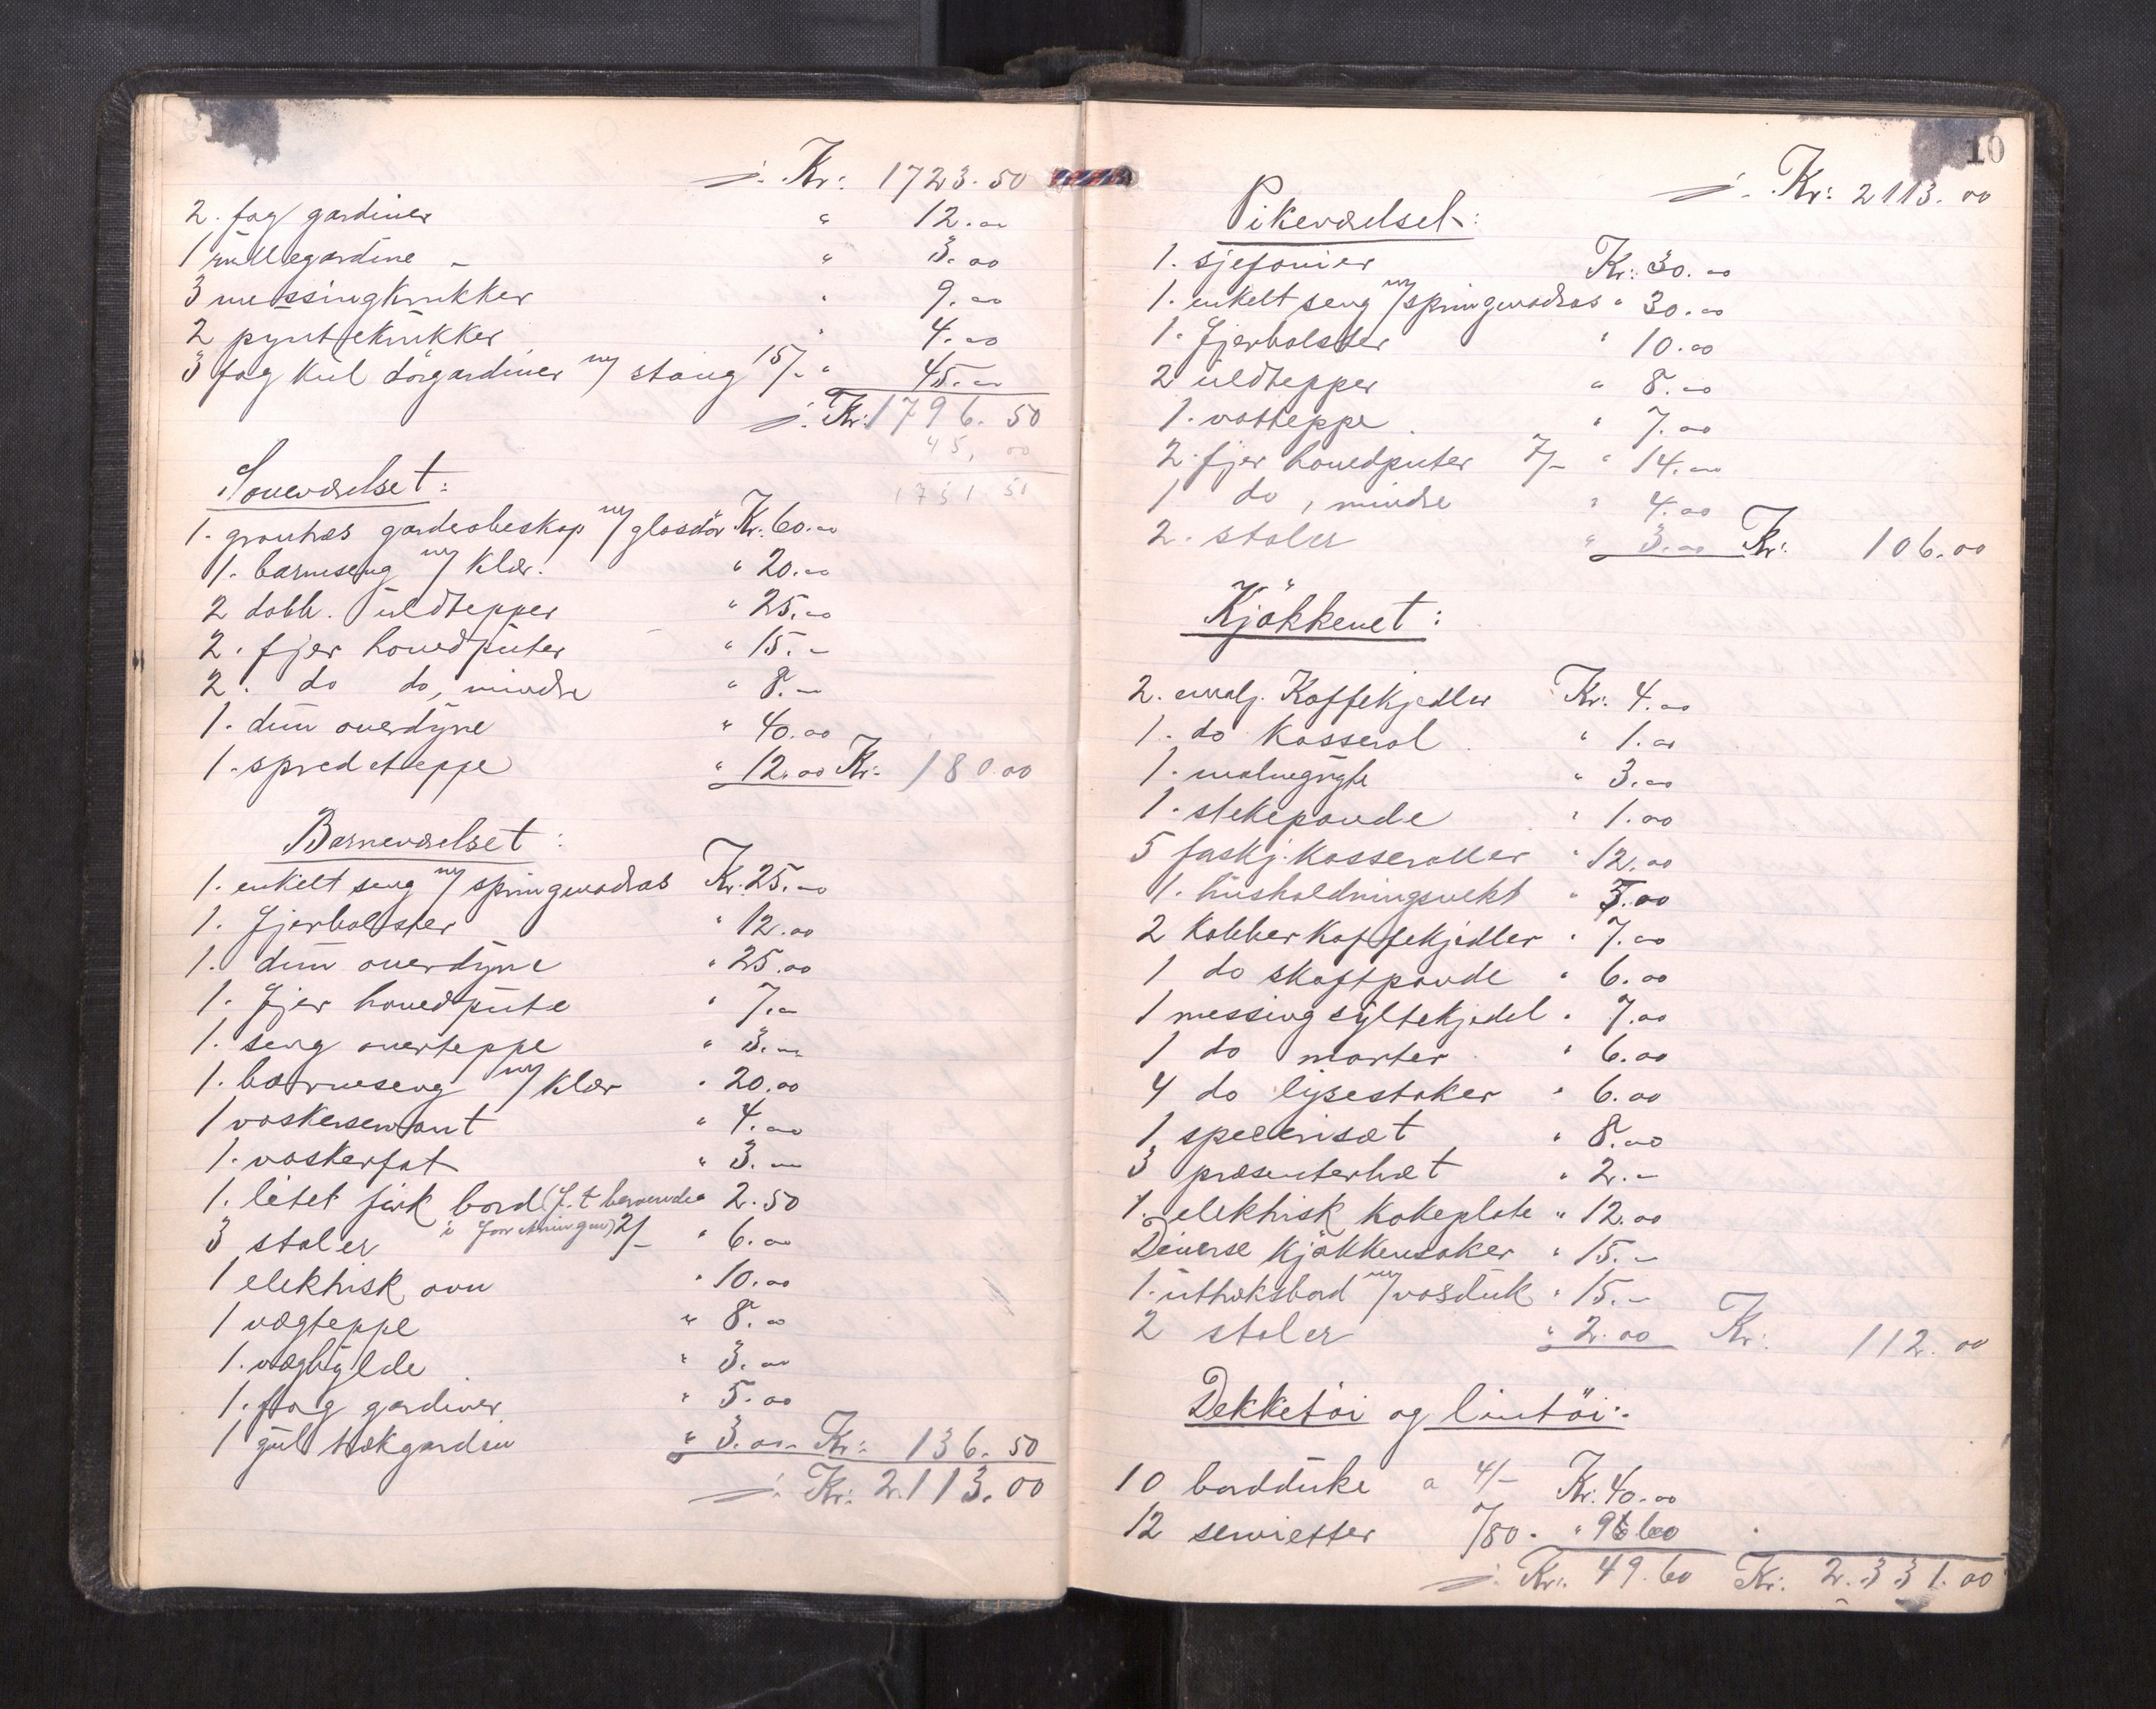 ÷ Kr: 1723.50
2. fag gardiner " 12.00
1 rullegardine - " 3.00
3 messingkrukker " 9.00
2 pyntekrukker " 4.00
3 fag kul dörgardiner m/ stang 15/- " 45.00
÷ Kr: 1796.50
45,00
1751.50
Soveværelset:
1. grantræs garderobeskap m/ glasdör Kr: 60.00
1. barneseng m/ klær. " 20.00
2 dobb. uldtepper " 25.00
2. fjer hovedputer " 15.-
2. do do, mindre " 8.-
1. dun overdyne " 40.00
1. spredeteppe " 12.00 Kr: 180.00
Barneværelset:
1. enkelt seng m/ springmadras Kr: 25.00
1. fjerbolster " 12.00
1. dun overdyne " 25.00
1. fjer hovedpute " 7.00
1. seng overteppe " 3.00
1. barneseng m/ klær " 20.00
1 vaskeservant " 4.00
1. vaskerfat " 3.00
1. litet firk bord (f. t beroende " 2.50
i forretningen)
3 stoler 2/- " 6.00
1 elektrisk ovn " 10.00
1 vægteppe " 8.00
1. væghylde " 3.00
1. fag gardiner " 5.00
1 gul trækgardin " 3.00 Kr: 136.50
÷ Kr: 2.113.00
10
÷ Kr: 2113.00
Pikeværelset:
1. sjefonier Kr: 30.00
1. enkelt seng m/ springmadras " 30.00
1. fjerbolster " 10.00
2 uldtepper " 8.00
1. vatteppe " 7.00
2. fjer hovedputer 7/- " 14.00
1 do, mindre " 4.00
2. stoler " 3.00 Kr: 106.00
Kjökkenet:
2. emalj. Kaffekjedler Kr: 4.00
1. do Kasserol " 1.00
1. malmgryte " 3.00
1. stekepande " 1.00
5 forskj. Kasseroller " 12.00
1. husholdningsvekt " 5.00
2 kobber kaffekjedler " 7.00
1 do skaftpande " 6.00
1 messing syltekjedel " 7.00
1 do morter " 6.00
4 do lysestaker " 6.00
1 speceriset " 8.00
3 presenterbræt " 2.-
1. elektrisk kokeplate " 12.00
Diverse kjökkensaker " 15.-
1. uttræksbord m/ voksduk " 15.-
2 stoler " 2.00 Kr: 112.00
Dekketöi og lintöi:
10 bordduke a 4/- Kr. 40.00
12 servietter /80. " 9 60
÷ Kr: 49.60 Kr: 2.331.00